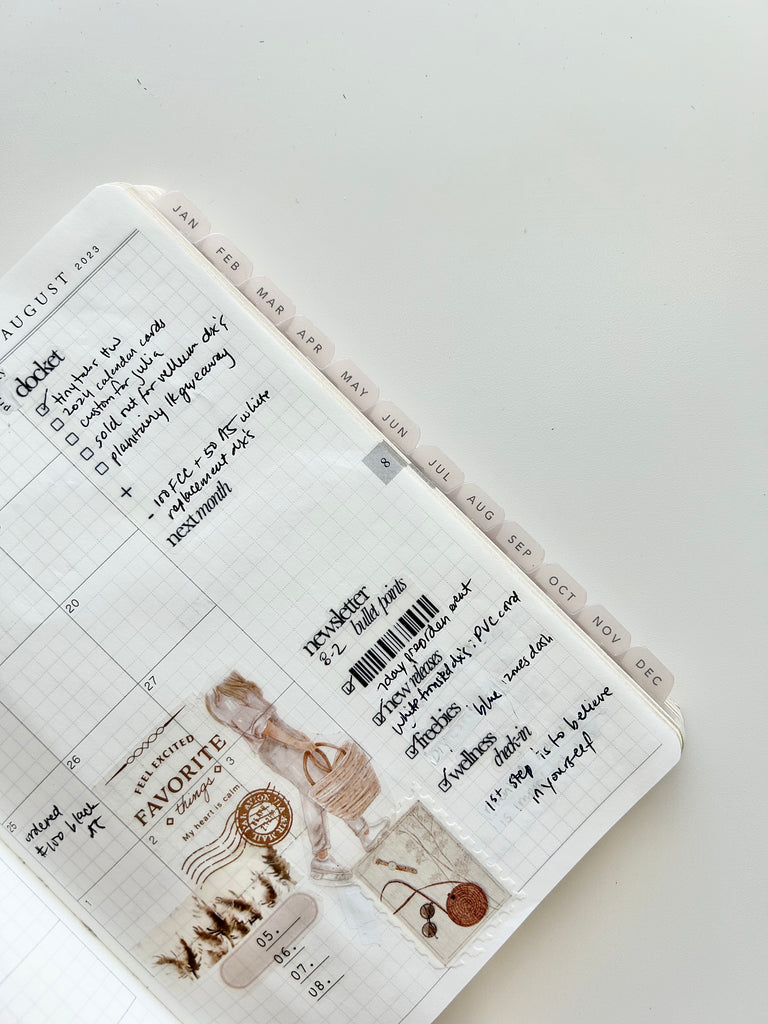 AUGUST 2023
docket
tiny tabs HW
2024 calendar cards
custom for julia
sold out for vellum dx's
planitairy 1k giveaway
+
- 100 FCC + 50 A5 white
replacement dx's
next month
JAN
FEB
MAR
APR
MAY
JUN
JUL
AUG
SEP
OCT
NOV
DEC
8
newsletter
8-2 bullet points
7day preorder event
new releases
white frosted dx's : PVC card
freebies
blue
wellness check-in
1st step is to believe
in yourself
20
27
26
25
3
2
1
ordered
#100 black
FEEL EXCITED
FAVORITE
things
My heart is calm
PAR AVION VIA AIR MAIL
05.
06.
07.
08.